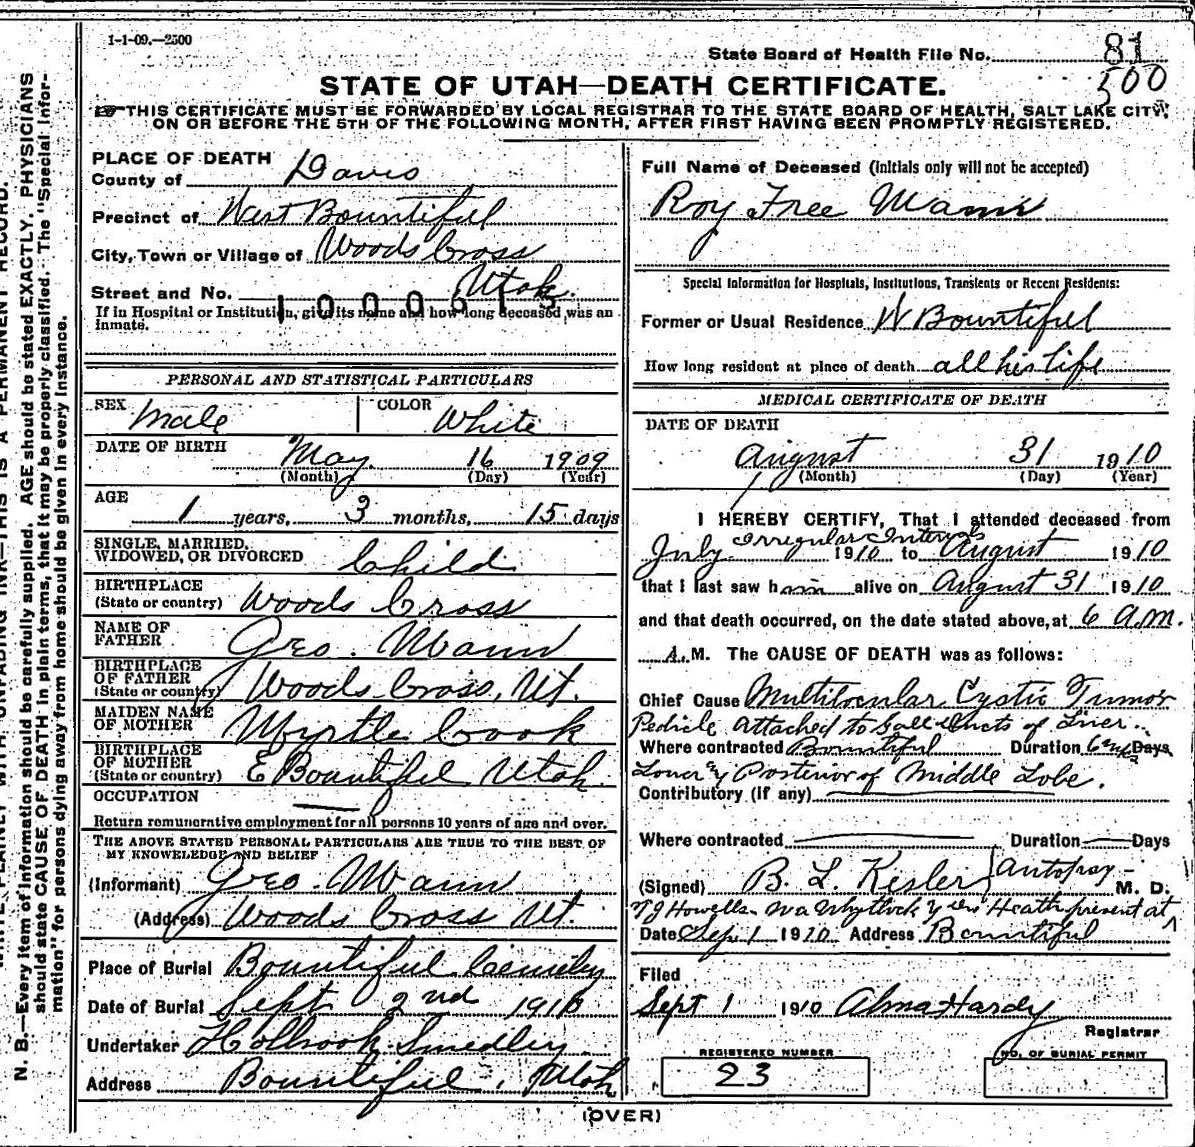 1-1-09.—2500
State Board of Health File No. 81
500
STATE OF UTAH—DEATH CERTIFICATE.
THIS CERTIFICATE MUST BE FORWARDED BY LOCAL REGISTRAR TO THE STATE BOARD OF HEALTH, SALT LAKE CITY,
ON OR BEFORE THE 5TH OF THE FOLLOWING MONTH, AFTER FIRST HAVING BEEN PROMPTLY REGISTERED.
N. B.—Every item of information should be carefully supplied. AGE should be stated EXACTLY. PHYSICIANS
should state CAUSE OF DEATH in plain terms, that it may be properly classified. The "Special Infor-
mation" for persons dying away from home should be given in every instance.
PLACE OF DEATH
County of Davis
Precinct of West Bountiful
City, Town or Village of Woods Cross
Utah
Street and No.
If in Hospital or Institution, give its name and how long deceased was an
inmate.
PERSONAL AND STATISTICAL PARTICULARS
SEX Male COLOR White
DATE OF BIRTH May 16 1909
(Month) (Day) (Year)
AGE
1 years, 3 months, 15 days
SINGLE, MARRIED,
WIDOWED, OR DIVORCED Child
BIRTHPLACE
(State or country) Woods Cross
NAME OF
FATHER Geo. Mann
BIRTHPLACE
OF FATHER
(State or country) Woods Cross, Ut.
MAIDEN NAME
OF MOTHER Myrtle Cook
BIRTHPLACE
OF MOTHER
(State or country) E Bountiful Utah
OCCUPATION
Return remunerative employment for all persons 10 years of age and over.
THE ABOVE STATED PERSONAL PARTICULARS ARE TRUE TO THE BEST OF
MY KNOWLEDGE AND BELIEF
(Informant) Geo. Mann
(Address) Woods Cross Ut.
Place of Burial Bountiful
Date of Burial Sept 2nd 1910
Undertaker Holbrook Smedley
Address Bountiful, Utah
Full Name of Deceased (initials only will not be accepted)
Roy Free Mann
Special Information for Hospitals, Institutions, Transients or Recent Residents:
Former or Usual Residence W Bountiful
How long resident at place of death all his life
MEDICAL CERTIFICATE OF DEATH
DATE OF DEATH
August 31 1910
(Month) (Day) (Year)
I HEREBY CERTIFY, That I attended deceased from
Irregular Intervals
July 1910 to August 1910
that I last saw him alive on August 31 1910
and that death occurred, on the date stated above, at 6 A.M.
A. M. The CAUSE OF DEATH was as follows:
Chief Cause Multilocular Cystic Tumor
Pedicle attached to Gall ducts of Liver
Where contracted Bountiful Duration 6 Days
Posterior of Middle Lobe.
Contributory (if any)
Where contracted Duration Days
Autopsy -
(Signed) B. L. Kesler M. D.
T J Howells present at
Date Sep 1 1910 Address Bountiful
Filed
Sept 1 1910 Alma Hardy
Registrar
REGISTERED NUMBER
23
NO. OF BURIAL PERMIT
(OVER)